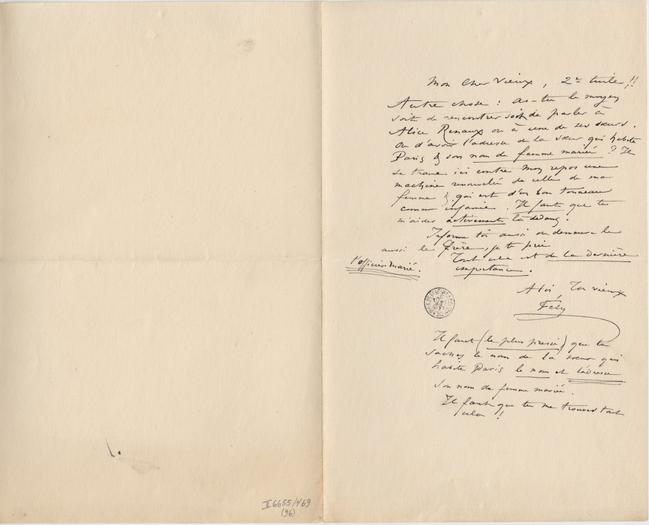 Mon Cher Vieux, 2me tuile!!
Autre chose : as-tu le moyen
soit de rencontrer soit de parler à
Alice Renaux ou à une de ses sœurs.
Ou d'avoir l'adresse de la sœur qui habite
Paris & son nom de femme mariée ? Il
se trame ici contre mon repos une
machine renouvelée de celles de ma
femme & qui est d'un bon tonneau
comme infamie. Il faut que tu
m'aides activement là dedans.
Informe toi aussi où demeure le
aussi le frère, je te prie
l'officier marié.
Tout cela est de la dernière
importance.
A toi Ton vieux
Fély
Il faut (le plus pressé) que tu
saches le nom de la sœur qui
habite Paris le nom et l'adresse
Son nom de femme mariée.
Il faut que tu me trouves tout
cela !
II 6655/469
(96)